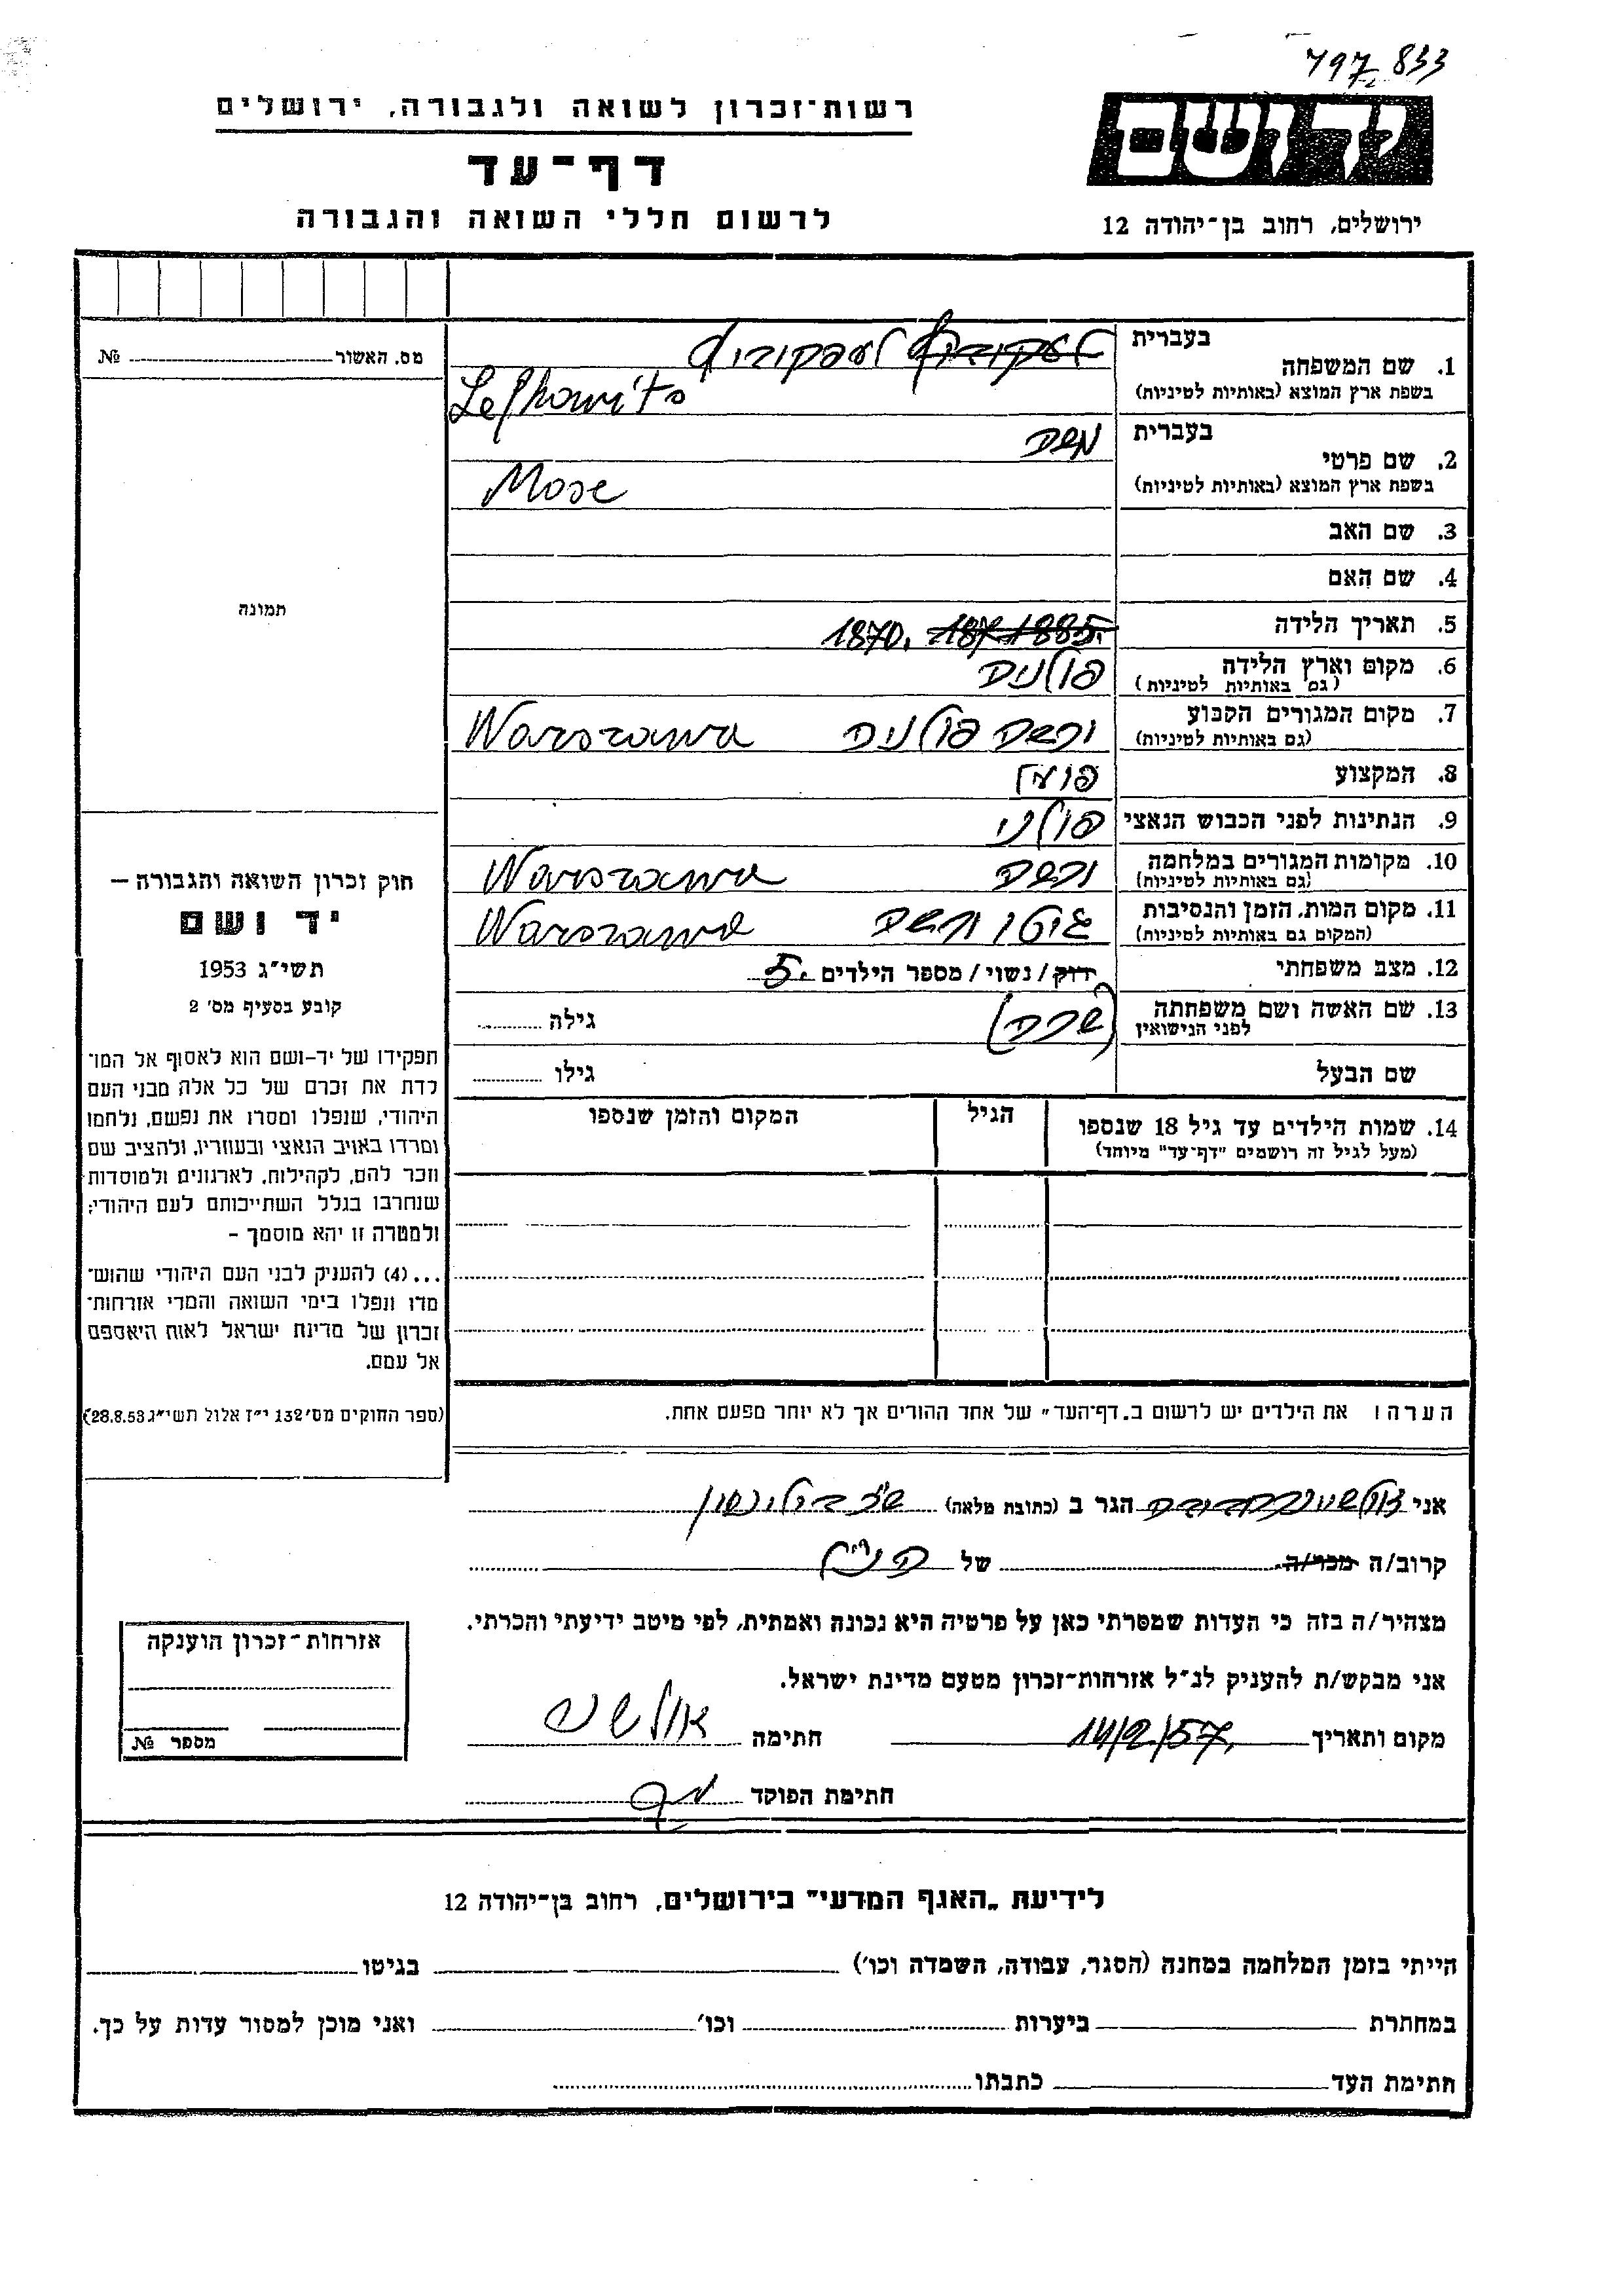 797,833
יד ושם
ירושלים, רחוב בן־יהודה 12
רשות־זכרון לשואה ולגבורה, ירושלים
דף־עד
לרשום חללי השואה והגבורה
מס. האשור №
תמונה
בעברית
1. שם המשפחה
בשפת ארץ המוצא (באותיות לטיניות)
Lefkowits
בעברית משה
2. שם פרטי
בשפת ארץ המוצא (באותיות לטיניות) Mose
3. שם האב
4. שם האם
5. תאריך הלידה 1885. 1870.
6. מקום וארץ הלידה פולניה
(גם באותיות לטיניות)
7. מקום המגורים הקבוע ורשה פולניה Warszawa
(גם באותיות לטיניות)
8. המקצוע
9. הנתינות לפני הכבוש הנאצי פולני
10. מקומות המגורים במלחמה ורשה Warszawa
(גם באותיות לטיניות)
11. מקום המות, הזמן והנסיבות גיטו ורשה Warszawa
(המקום גם באותיות לטיניות)
12. מצב משפחתי רוק/נשוי/מספר הילדים 5.
13. שם האשה ושם משפחתה (שרה) גילה
לפני הנישואין
שם הבעל גילו
14. שמות הילדים עד גיל 18 שנספו הגיל המקום והזמן שנספו
(מעל לגיל זה רושמים "דף־עד" מיוחד)
הערה: את הילדים יש לרשום ב„דף־העד" של אחד ההורים אך לא יותר מפעם אחת.
חוק זכרון השואה והגבורה –
יד ושם
תשי״ג 1953
קובע בסעיף מס׳ 2
תפקידו של יד־ושם הוא לאסוף אל המו־
לדת את זכרם של כל אלה מבני העם
היהודי, שנפלו ומסרו את נפשם, נלחמו
ומרדו באויב הנאצי ובעוזריו, ולהציב שם
וזכר להם, לקהילות, לארגונים ולמוסדות
שנחרבו בגלל השתייכותם לעם היהודי;
ולמטרה זו יהא מוסמך –
...(4) להעניק לבני העם היהודי שהוש־
מדו ונפלו בימי השואה והמרי אזרחות־
זכרון של מדינת ישראל לאות היאספם
אל עמם.
(ספר החוקים מס׳ 132 י״ז אלול תשי״ג 28.8.53)
אני הגר ב (כתובת מלאה)
קרוב/ה מכר/ה של
מצהיר/ה בזה כי העדות שמסרתי כאן על פרטיה היא נכונה ואמתית, לפי מיטב ידיעתי והכרתי.
אני מבקש/ת להעניק לנ״ל אזרחות־זכרון מטעם מדינת ישראל.
מקום ותאריך 14/2/57. חתימה
חתימת הפוקד
אזרחות־זכרון הוענקה
מספר №
לידיעת „האגף המדעי" בירושלים, רחוב בן־יהודה 12
הייתי בזמן המלחמה במחנה (הסגר, עבודה, השמדה וכו׳) בגיטו
במחתרת ביערות וכו׳ ואני מוכן למסור עדות על כך.
חתימת העד כתבתו